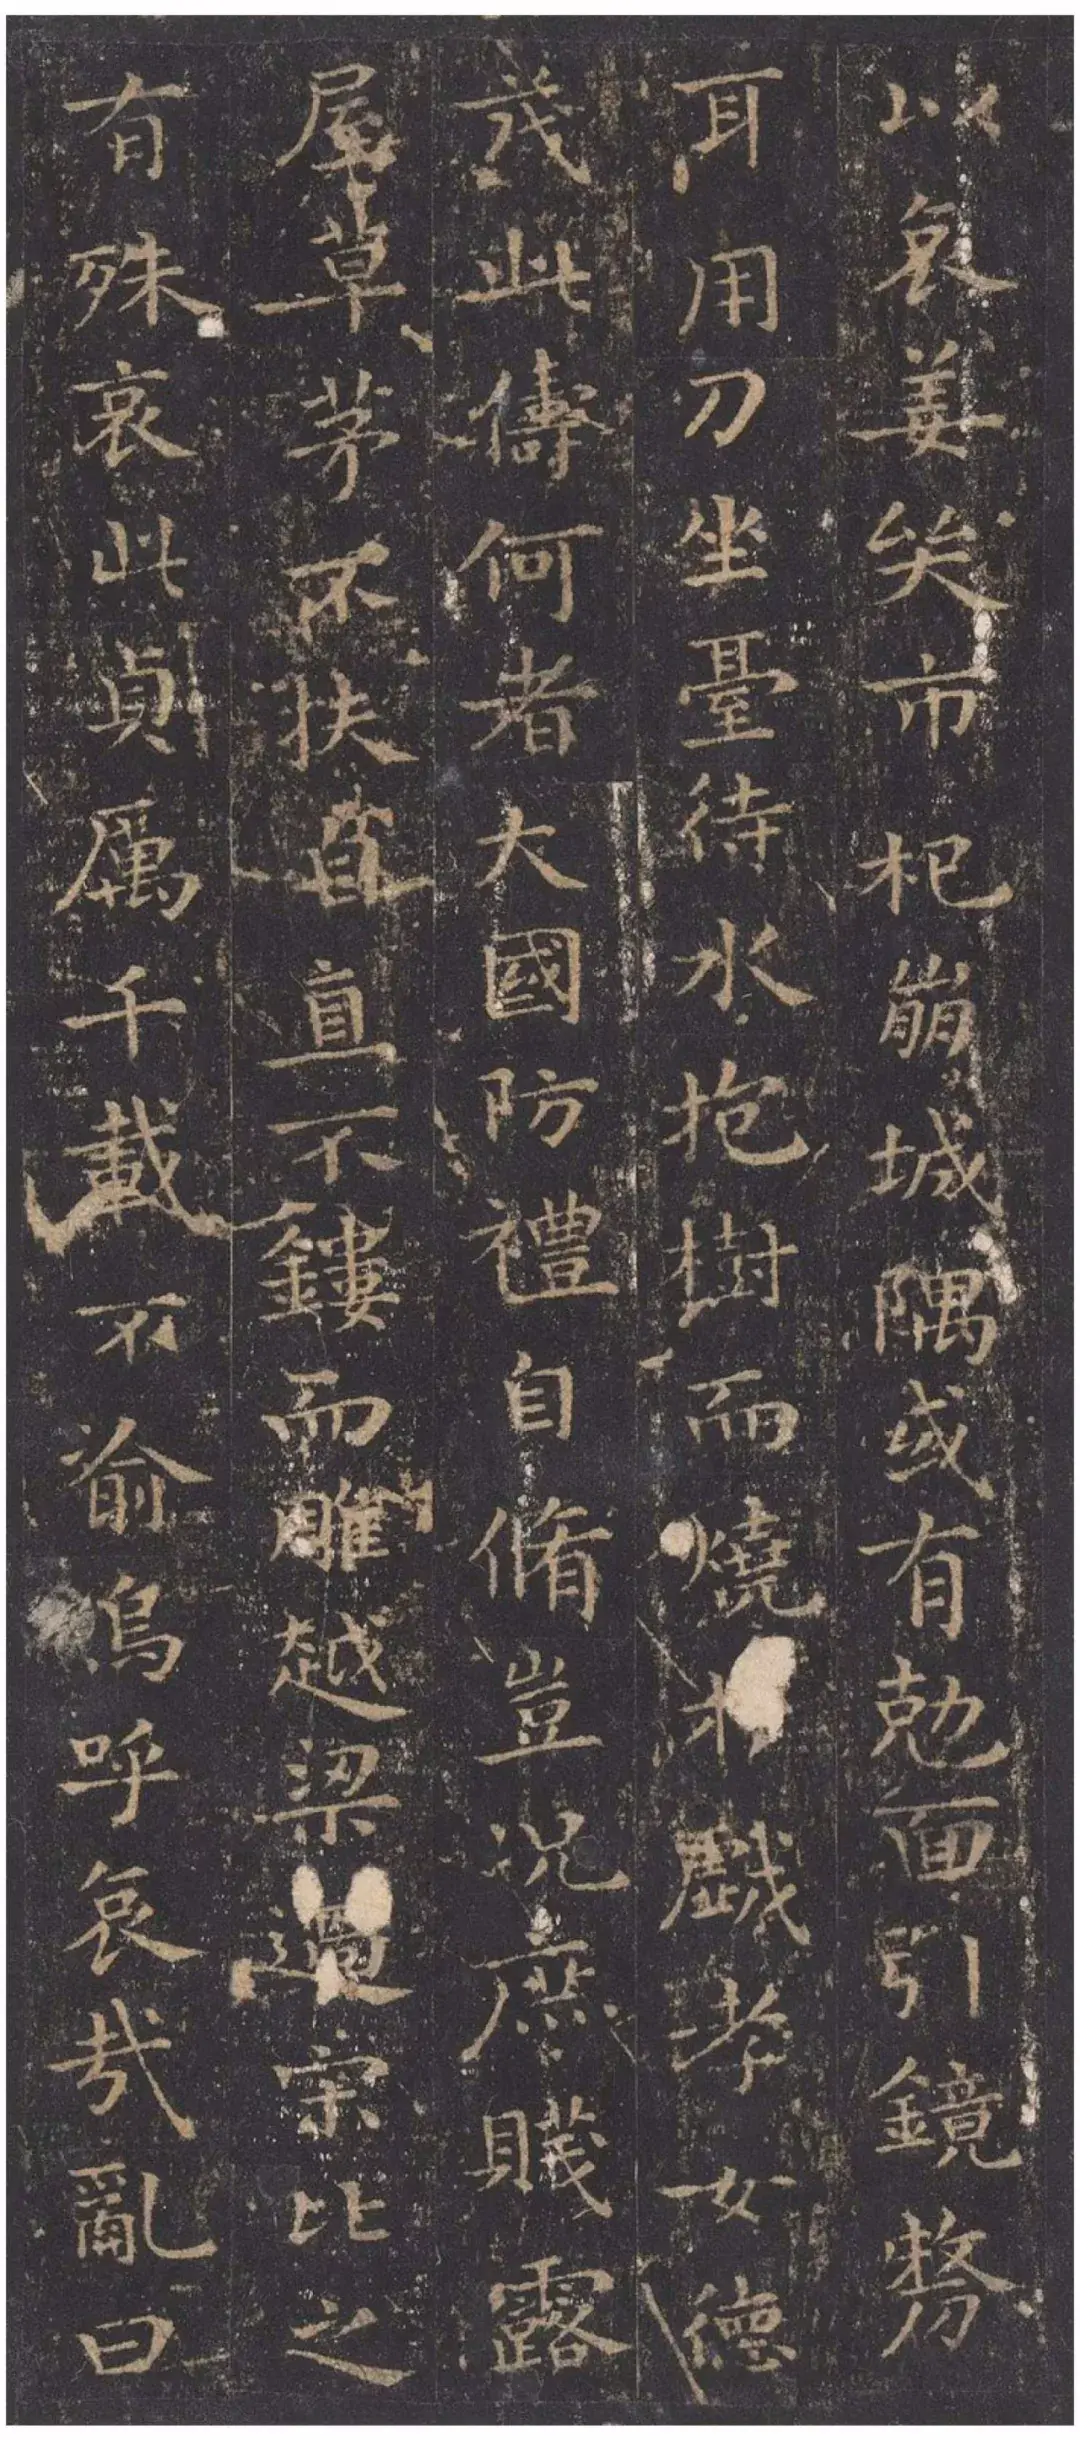 以哀姜哭市杞崩城隅或有勀面引鏡剺
耳用刀坐臺待水抱樹而燒於戲孝女德
茂此儔何者大國防禮自脩豈況庶賤露
屋草茅不扶自直不鏤而雕越梁過宋比之
有殊哀此貞厲千載不渝嗚呼哀哉亂曰